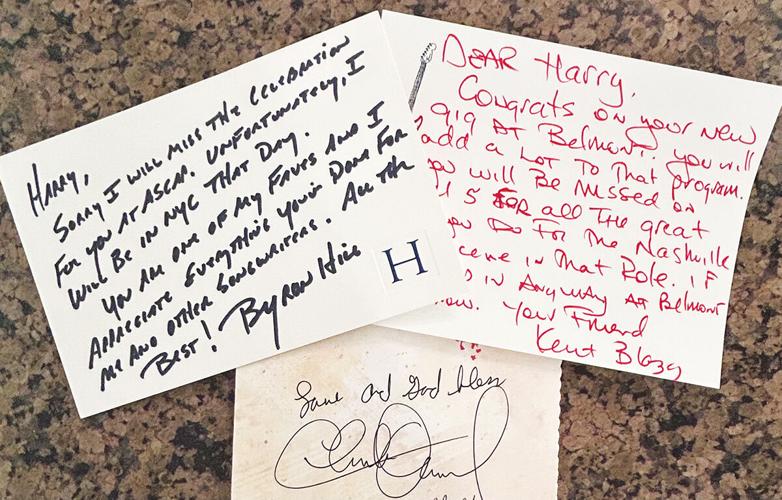 HARRY,
SORRY I WILL MISS THE CELEBRATION
FOR YOU AT ASCAP. UNFORTUNATELY, I
WILL BE IN NYC THAT DAY.
YOU ARE ONE OF MY FAVES AND I
APPRECIATE EVERYTHING YOU'VE DONE FOR
ME AND OTHER SONGWRITERS. ALL THE
BEST! BYRON HILL
H
DEAR Harry,
Congrats on your new
gig AT Belmont. you will
add a LOT To That program.
will Be Missed on
FOR all The great
Do For The Nashville
in That Role. IF
in Anyway AT Belmont
Your Friend
Kent Blazy
Love and God bless